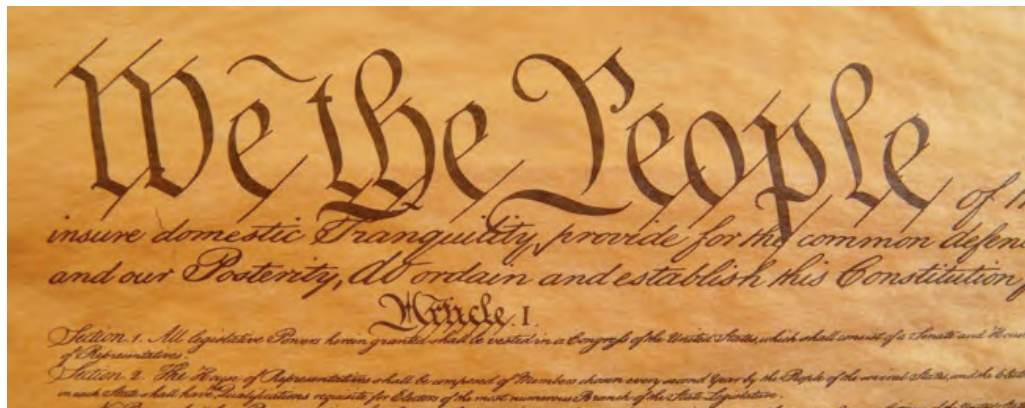 We the People of th
insure domestic Tranquility, provide for the common defenc
and our Posterity, do ordain and establish this Constitution f
Article. I.
Section. 1. All legislative Powers herein granted shall be vested in a Congress of the United States, which shall consist of a Senate and House
of Representatives.
Section. 2. The House of Representatives shall be composed of Members chosen every second Year by the People of the several States, and the Elect
in each State shall have the Qualifications requisite for Electors of the most numerous Branch of the State Legislature.